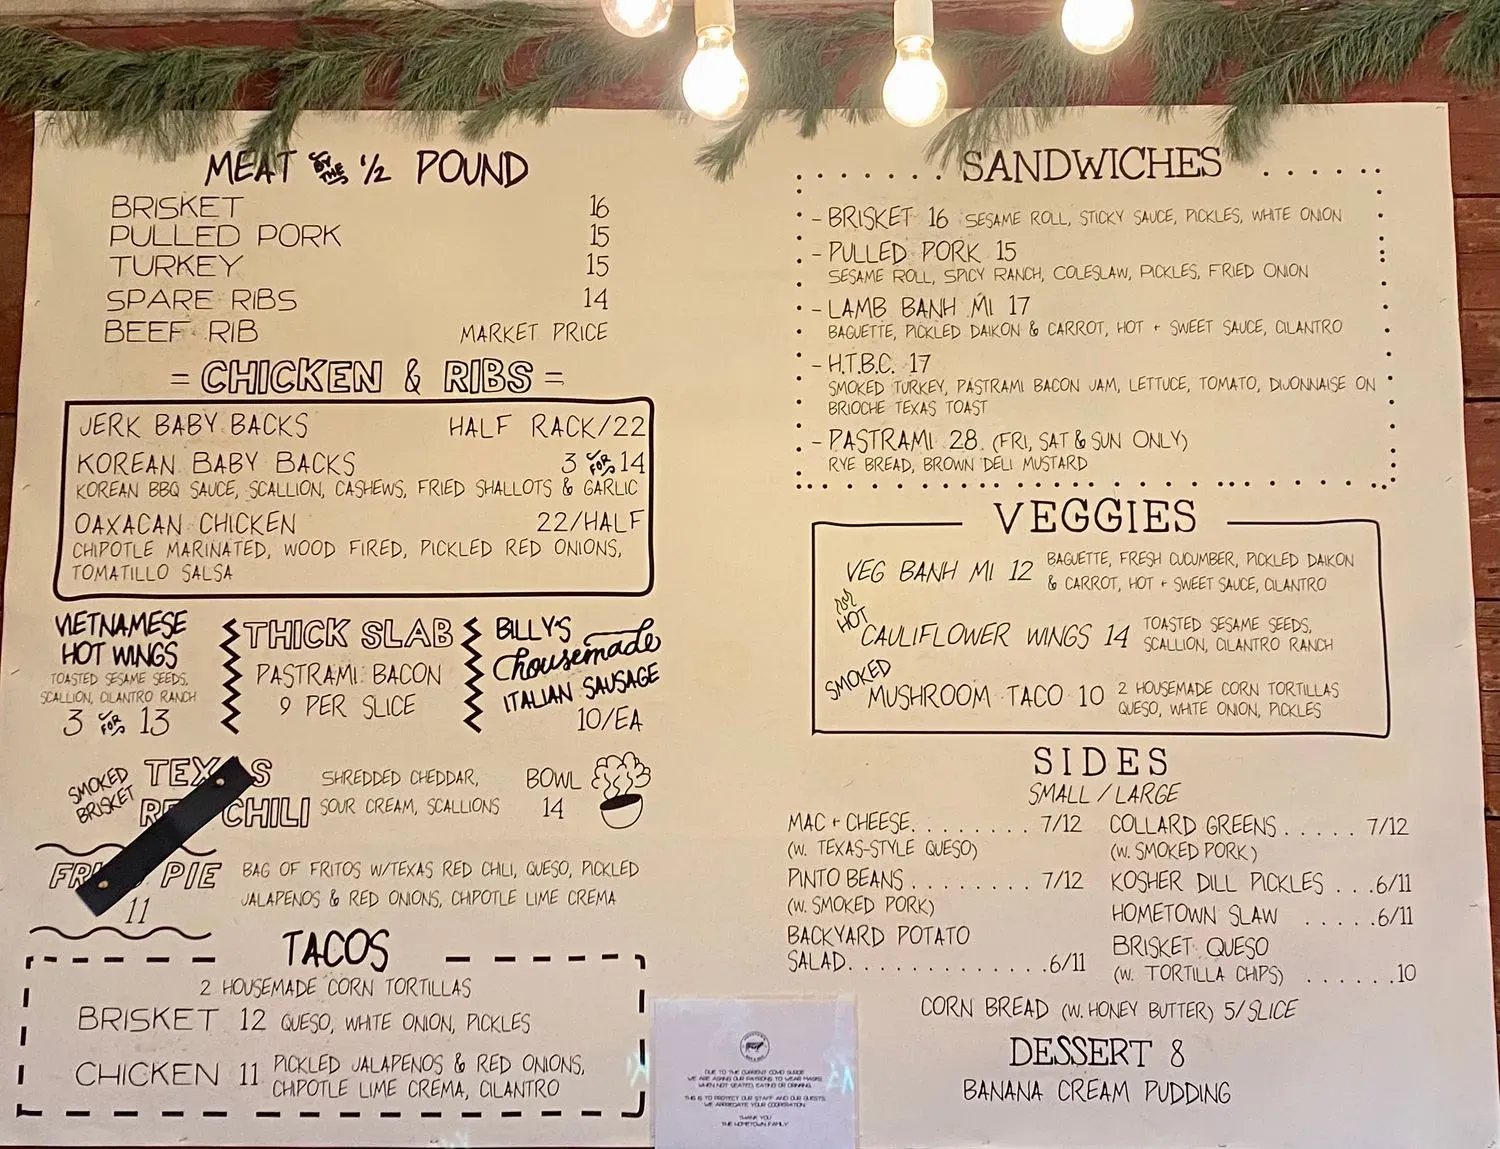 MEAT BY THE 1/2 POUND
BRISKET 16
PULLED PORK 15
TURKEY 15
SPARE RIBS 14
BEEF RIB MARKET PRICE
= CHICKEN & RIBS =
JERK BABY BACKS HALF RACK/22
KOREAN BABY BACKS 3 FOR 14
KOREAN BBQ SAUCE, SCALLION, CASHEWS, FRIED SHALLOTS & GARLIC
OAXACAN CHICKEN 22/HALF
CHIPOTLE MARINATED, WOOD FIRED, PICKLED RED ONIONS,
TOMATILLO SALSA
VIETNAMESE
HOT WINGS
TOASTED SESAME SEEDS,
SCALLION, CILANTRO RANCH
3 FOR 13
THICK SLAB
PASTRAMI BACON
9 PER SLICE
BILLY'S
housemade
ITALIAN SAUSAGE
10/EA
SMOKED
BRISKET
TEX S
RE CHILI
SHREDDED CHEDDAR,
SOUR CREAM, SCALLIONS
BOWL
14
FR PIE
11
BAG OF FRITOS W/TEXAS RED CHILI, QUESO, PICKLED
JALAPENOS & RED ONIONS, CHIPOTLE LIME CREMA
TACOS
2 HOUSEMADE CORN TORTILLAS
BRISKET 12 QUESO, WHITE ONION, PICKLES
CHICKEN 11 PICKLED JALAPENOS & RED ONIONS,
CHIPOTLE LIME CREMA, CILANTRO
SANDWICHES
- BRISKET 16 SESAME ROLL, STICKY SAUCE, PICKLES, WHITE ONION
- PULLED PORK 15
SESAME ROLL, SPICY RANCH, COLESLAW, PICKLES, FRIED ONION
- LAMB BANH MI 17
BAGUETTE, PICKLED DAIKON & CARROT, HOT + SWEET SAUCE, CILANTRO
- H.T.B.C. 17
SMOKED TURKEY, PASTRAMI BACON JAM, LETTUCE, TOMATO, DIJONNAISE ON
BRIOCHE TEXAS TOAST
- PASTRAMI 28 (FRI, SAT & SUN ONLY)
RYE BREAD, BROWN DELI MUSTARD
VEGGIES
VEG BANH MI 12 BAGUETTE, FRESH CUCUMBER, PICKLED DAIKON
& CARROT, HOT + SWEET SAUCE, CILANTRO
HOT
CAULIFLOWER WINGS 14 TOASTED SESAME SEEDS,
SCALLION, CILANTRO RANCH
SMOKED
MUSHROOM TACO 10 2 HOUSEMADE CORN TORTILLAS
QUESO, WHITE ONION, PICKLES
SIDES
SMALL / LARGE
MAC + CHEESE........ 7/12
(W. TEXAS-STYLE QUESO)
PINTO BEANS........ 7/12
(W. SMOKED PORK)
BACKYARD POTATO
SALAD.............6/11
COLLARD GREENS..... 7/12
(W. SMOKED PORK)
KOSHER DILL PICKLES ...6/11
HOMETOWN SLAW .....6/11
BRISKET QUESO
(W. TORTILLA CHIPS) ......10
CORN BREAD (W. HONEY BUTTER) 5/SLICE
DESSERT 8
BANANA CREAM PUDDING
DUE TO THE CURRENT COVID SURGE
WE ARE ASKING OUR PATRONS TO WEAR MASKS
WHEN NOT SEATED, EATING OR DRINKING.
THIS IS TO PROTECT OUR STAFF AND OUR GUESTS.
WE APPRECIATE YOUR COOPERATION.
THANK YOU
THE HOMETOWN FAMILY